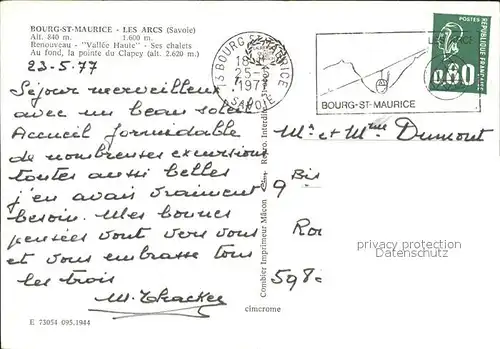 BOURG-ST-MAURICE - LES ARCS (Savoie)
Alt. 840 m. 1.600 m.
Renouveau - "Vallée Haute" - Ses chalets
Au fond, la pointe du Clapey (alt. 2.620 m.)
23-5.77
Séjour merveilleux
avec un beau soleil
Accueil formidable
de nombreuses excursions
toutes aussi belles
j'en avais vraiment
besoin. Mes bonnes
pensées vont vers vous
et vous embrasse tous
les trois
E 73054 095.1944
BOURG-ST-MAURICE
25-5
1977
SAVOIE
LES ARCS
BOURG-ST-MAURICE
POSTES
0,80
REPUBLIQUE FRANÇAISE
Mr et Mme Dumont
9 Bis
598
Combier Imprimeur Mâcon
Repro. Interdite
cimcrome
privacy protection
Datenschutz